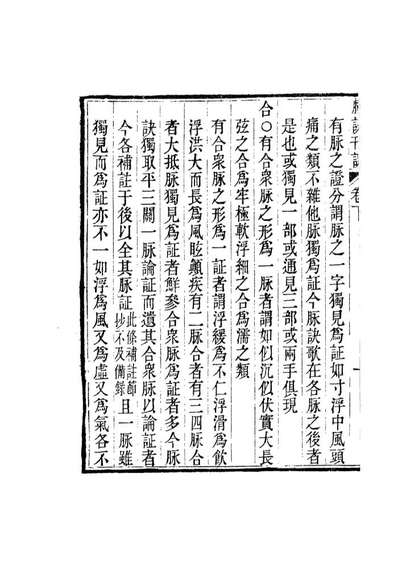 脉訣刊誤 卷下
有脉之證分謂脉之一字獨見爲証如寸浮中風頭
痛之類不雜他脉獨爲証今脉訣歌在各脉之後者
是也或獨見一部或通見三部或兩手俱現
合○有合衆脉之形爲一脉者謂如似沉似伏實大長
弦之合爲牢極軟浮細之合爲濡之類
有合衆脉之形爲一証者謂浮緩爲不仁浮滑爲飲
浮洪大而長爲風眩顛疾有二脉合者有三四脉合
者大抵脉獨見爲証者鮮參合衆脉爲証者多今脉
訣獨取平三關一脉論証而遺其合衆脉以論証者
今各補註于後以全其脉証此條補註節抄不及備錄且一脉雖
獨見而爲証亦不一如浮爲風又爲虛又爲氣各不